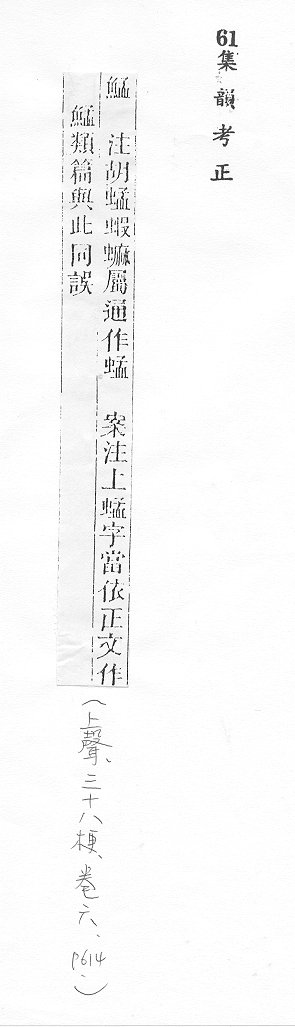 61
集韻考正
鯭　注胡蜢蝦䗫屬通作蜢　案注上蜢字當依正文作
鯭類篇與此同誤
（上聲、三十八梗、卷六、P614）